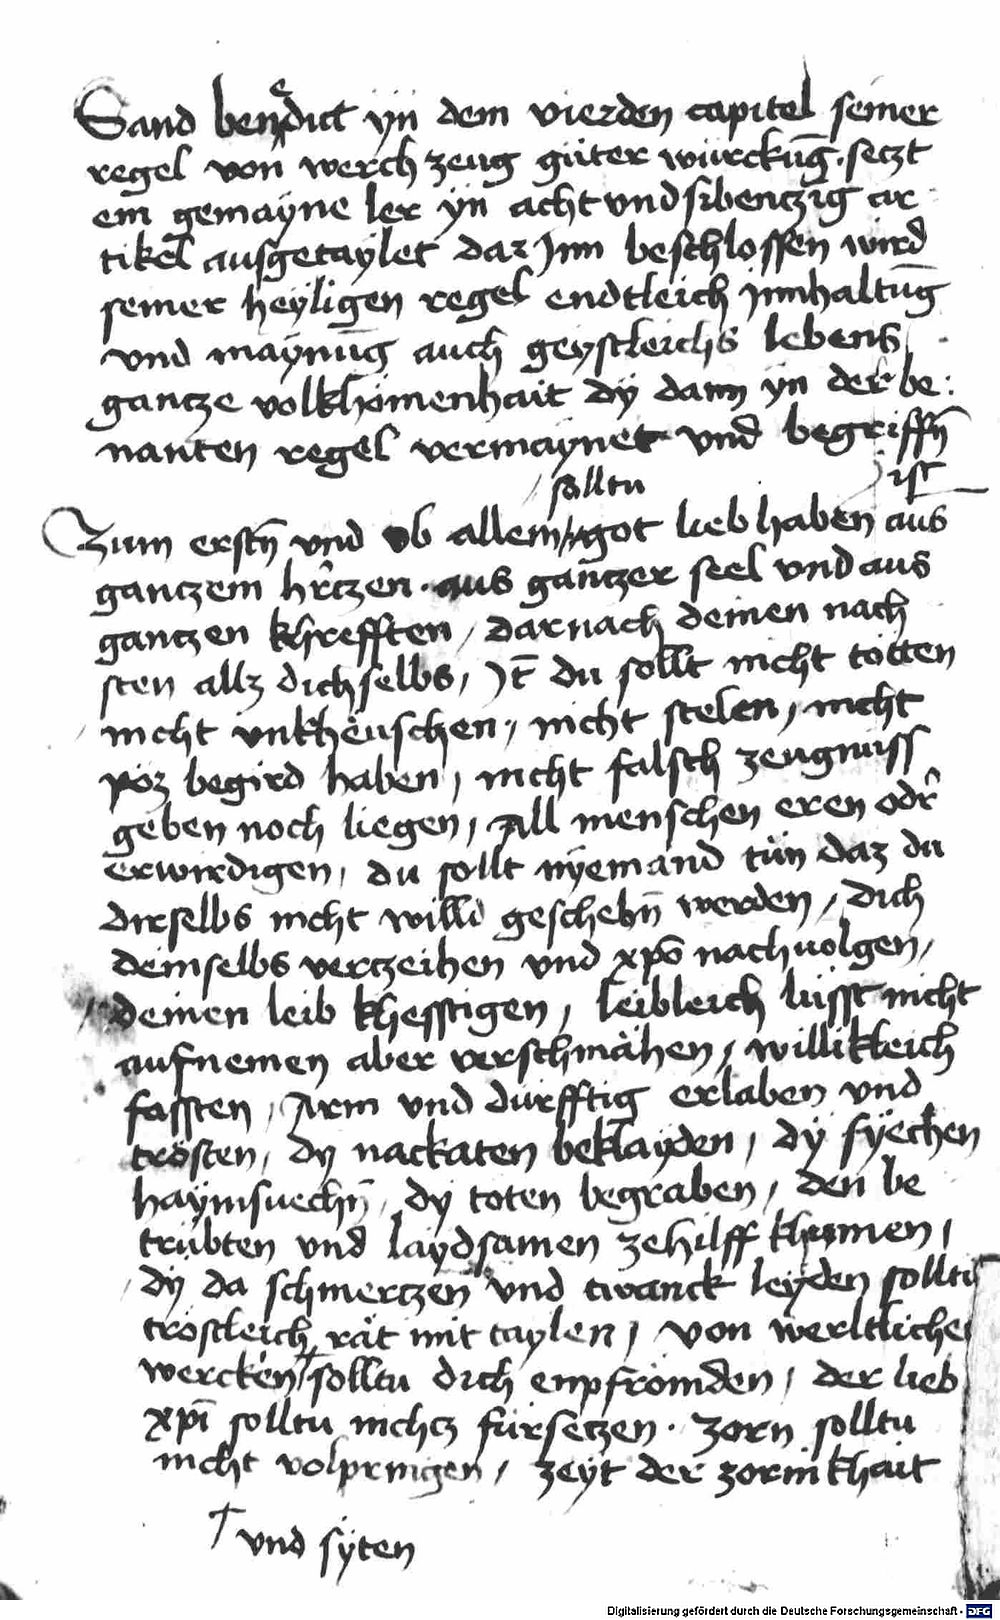 Sand benedict yn dem vierden capitel seiner
regel von werch zeug güter würckūg · seczt
ein gemayne ler yn acht vnd sibenczig ar
tikel ausgetaylet dar Jnn beschlossen wird
seiner heyligen regel endtleich jnnhaltūg
vnd maynūg auch geystleichs lebens
gancze volkhomenhait dy dann yn der be
nanten regel vermaynet vnd begriffn̄
ist
solltu
Zum erstn̄ vnd ob allem got lieb haben aus
ganczem hrczen · aus ganczer seel vnd aus
ganczen khrefften / darnach deinen nach
sten allz dich selbs / Jt̄ du sollt nicht totten
nicht vnkheuschen / nicht stelen / nicht
poz begird haben / nicht falsch zeugnuss
geben noch liegen / All menschen eren odr
erwirdigen / du sollt nyemand tün daz du
dirselbs nicht willd geschehn̄ werden / Dich
deinselbs verczeihen vnd xpō nachuolgen /
deinen leib khesstigen / leibleich lüsst nicht
aufnemen aber verschmähen / willikleich
fassten / Arm vnd dürfftig erlaben vnd
trösten / dy nackaten beklayden / dy syechen
haymsuechn̄ / dy toten begraben / den be
trübten vnd laydsamen zehilff khumen /
dy da schmerczen vnd twanck leyden solltu
tröstleich rät mit taylen / von werltliche
wercken † solltu dich enpfrömden / der lieb
xpī solltu nichcz fürseczen · Zorn solltu
nicht volpringen / zeyt der zornikhait
† vnd syten
Digitalisierung gefördert durch die Deutsche Forschungsgemeinschaft - DFG